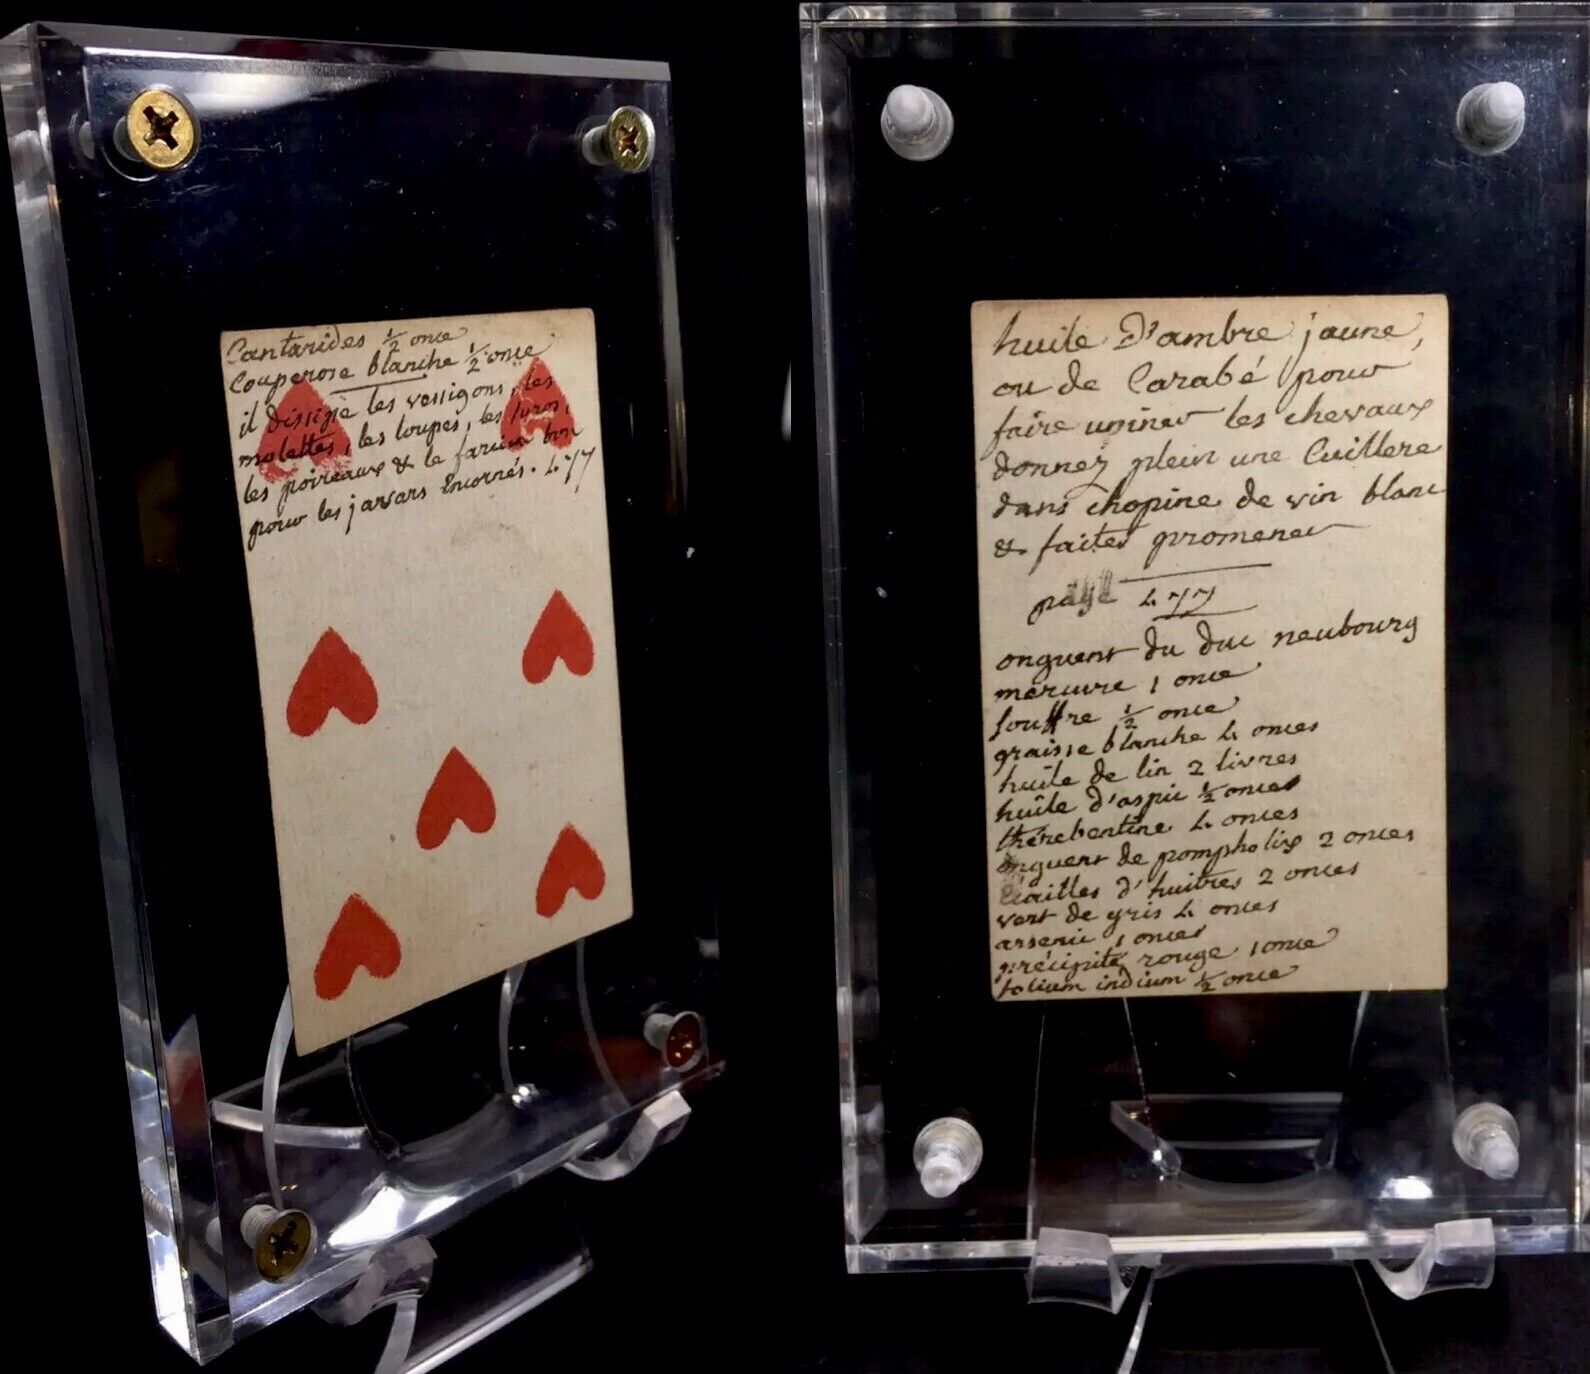 Cantarides ½ once
Couperose blanche ½ once
il dissipe les vessigons, les
molettes, les loupes, les suros,
les poireaux & le farcin bon
pour les javars Encornés. 477
huile D'ambre jaune,
ou de Carabé pour
faire uriner les chevaux
donnez plein une Cuillere
dans chopine de vin blanc
& faites promener
page 477
onguent du duc neubourg
mercure 1 once
souffre ½ once
graisse blanche 4 onces
huile de lin 2 livres
huile d'aspic ½ onces
thérebentine 4 onces
onguent de pompholix 2 onces
Ecailles d'huitres 2 onces
vert de gris 4 onces
arsenic 1 onces
précipité rouge 1 once
folium indium ½ once